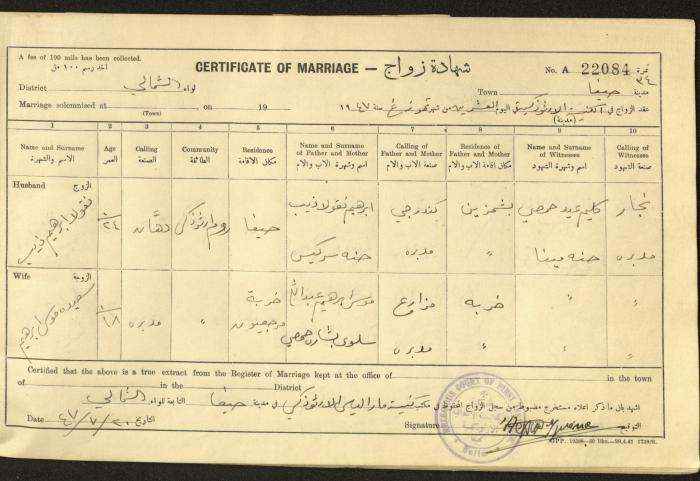 A fee of 100 mils has been collected.
اخذ رسم ١٠٠ مل
CERTIFICATE OF MARRIAGE — شهادة زواج
No. A 22084 نمرة
٣٤
District لواء الشمالي
Town حيفا مدينة
Marriage solemnised at on 19
(Town)
عقد الزواج في الكنيسة الارثوذكسية في اليوم العشرين من شهر تموز سنة ١٩٤٧
(مدينة)
1 2 3 4 5 6 7 8 9 10
Name and Surname
الاسم والشهرة
Age
العمر
Calling
الصنعة
Community
الطائفة
Residence
مكان الاقامة
Name and Surname of Father and Mother
اسم وشهرة الاب والام
Calling of Father and Mother
صنعة الاب والام
Residence of Father and Mother
مكان اقامة الاب والام
Name and Surname of Witnesses
اسم وشهرة الشهود
Calling of Witnesses
صنعة الشهود
Husband الزوج
نقولا ابراهيم ذيب
٢٤
دهان
روم ارثوذكس
حيفا
ابرهيم نقولا ذيب
حنه سركيس
كندرجي
مدبره
بشمزين
〃
كليم عيد حمصي
حنه مينا
نجار
مدبره
Wife الزوجة
سعيده موسى ابرهيم
١٨
مدبره
〃
خربة
مرجعيون
موسى ابرهيم عبدالله
سلوى بشاره حمصي
مزارع
مدبره
خربه
〃
〃
〃
〃
〃
Certified that the above is a true extract from the Register of Marriage kept at the office of in the town
of in the District
اشهد بان ما ذكر اعلاه مستخرج مضبوط من سجل الزواج المحفوظ في مكتب كنيسة مار الياس الارثوذكس في مدينة حيفا التابعة للواء الشمالي
Date ٤٧/٧/٢٠ التاريخ
Signature التوقيع